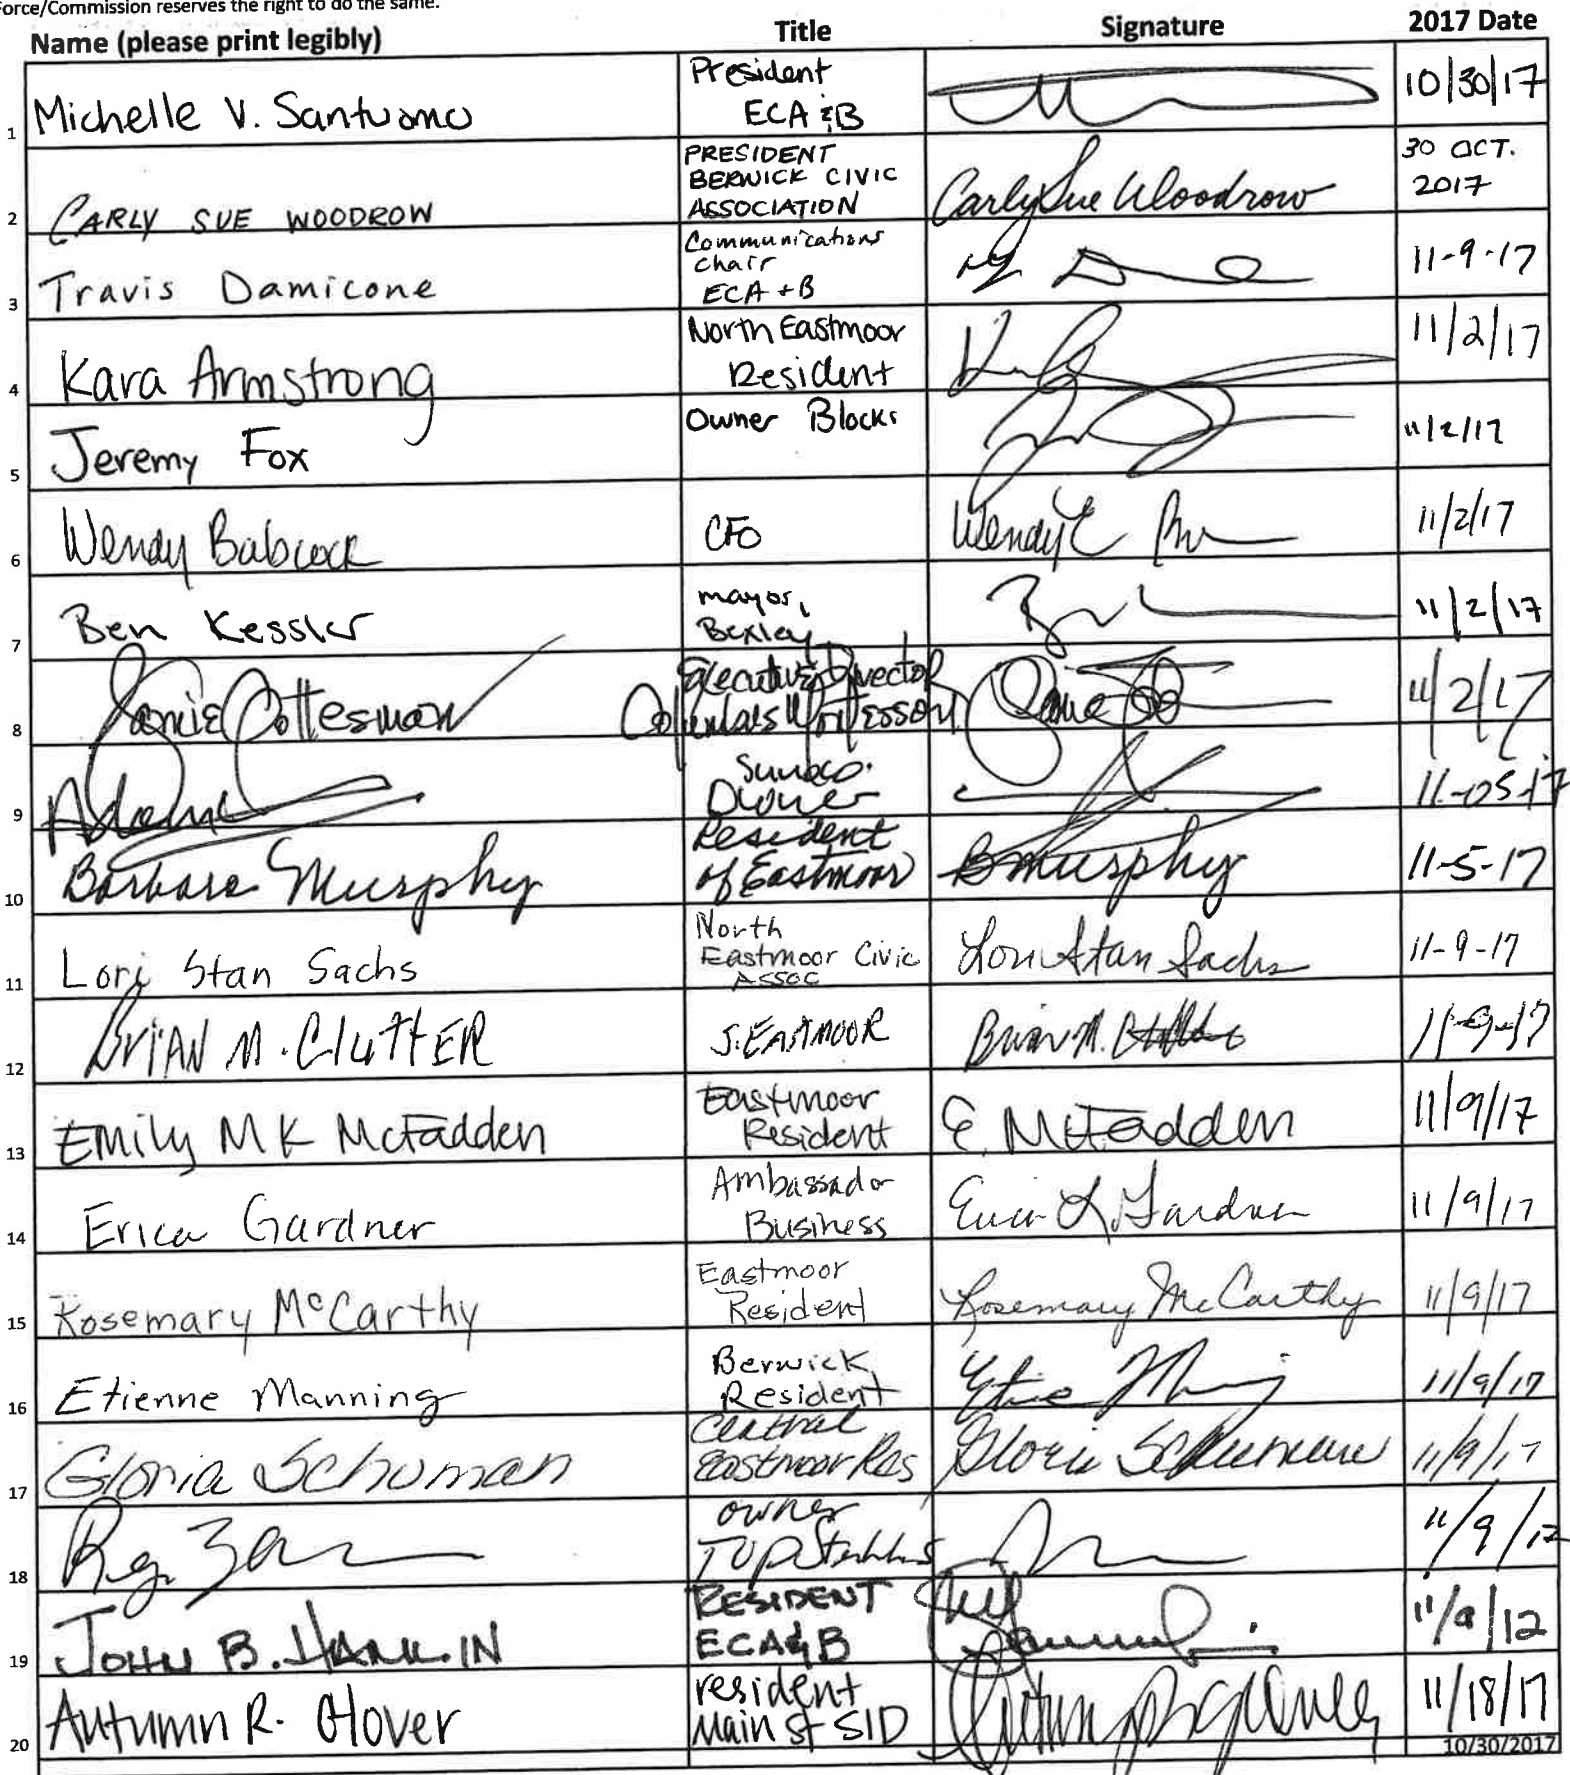 Force/Commission reserves the right to do the same.
Name (please print legibly) Title Signature 2017 Date
1 Michelle V. Santuomo President ECA &B 10/30/17
2 CARLY SUE WOODROW PRESIDENT BERWICK CIVIC ASSOCIATION Carly Sue Woodrow 30 OCT. 2017
3 Travis Damicone Communications Chair ECA + B 11-9-17
4 Kara Armstrong North Eastmoor Resident 11/2/17
5 Jeremy Fox Owner Blocks 11/2/17
6 Wendy Babcock CFO Wendy E 11/2/17
7 Ben Kessler mayor, Bexley 11/2/17
8 Jamie Gottesman Executive Director Montessori 11/2/17
9 Sunoco. Owner 11-05-17
10 Barbara Murphy Resident of Eastmoor B Murphy 11-5-17
11 Lori Stan Sachs North Eastmoor Civic Assoc Lori Stan Sachs 11-9-17
12 BRIAN M. CLUTTER S. EASTMOOR Brian M. 11-9-17
13 Emily MK McFadden Eastmoor Resident E. McFadden 11/9/17
14 Erica Gardner Ambassador Business Erica L Gardner 11/9/17
15 Rosemary McCarthy Eastmoor Resident Rosemary McCarthy 11/9/17
16 Etienne Manning Berwick Resident 11/9/17
17 Gloria Schuman Central Eastmoor Res Gloria Schuman 11/9/17
18 owner TOP 11/9/17
19 JOHN B. HANKIN RESIDENT ECA & B 11/9/12
20 Autumn R. Glover resident Main St SID 11/18/17
10/30/2017